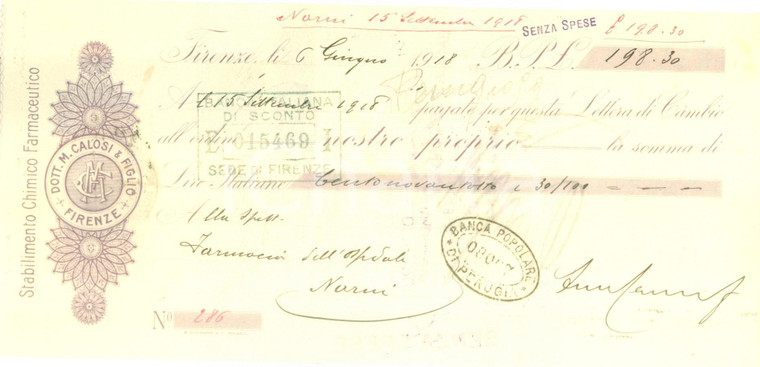 Narni 15 Settembre 1918 SENZA SPESE £ 198.30
Firenze, li 6 Giugno 1918 B.P.L. 198.30
A l 15 Settembre 1918 pagate per questa Lettera di Cambio
all'ordine nostro proprio la somma di
Lire Italiane Centonovantotto e 30/100
Alla Spett.
Farmacia dell'Ospedale
Narni
No 286
Stabilimento Chimico Farmaceutico
DOTT. M. CALOSI & FIGLIO
FIRENZE
BANCA ITALIANA
DI SCONTO
015469
SEDE DI FIRENZE
BANCA POPOLARE
DI PERUGIA